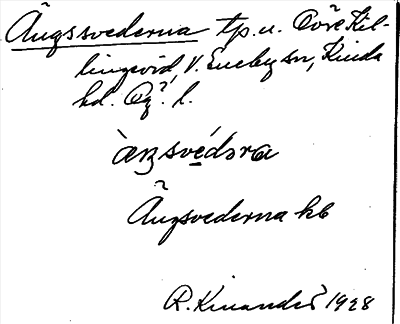 Ängssvederna tp. u. Övre Kil-
lingevid, V. Eneby sn, Kinda
hd. Ög. l.
àŋsvédəra
Ängsvederna kb
R. Kinander 1928